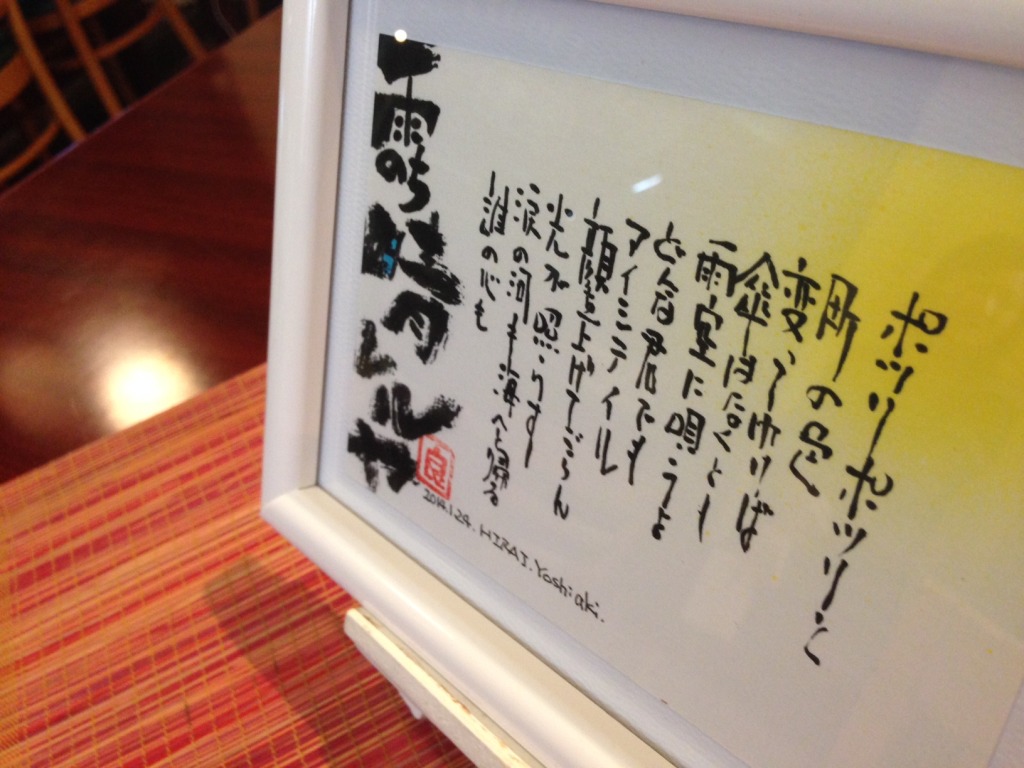 ポツリーポツリーと
町の色
変ってゆけば
傘はなくとも
雨空に唄うよ
どんな君でも
アイシテイル
顔を上げてごらん
光が照らす
涙の河も海へと帰る
誰の心も
雨のち晴レルヤ
良
2014.1.24. HIRAI.Yoshiaki.